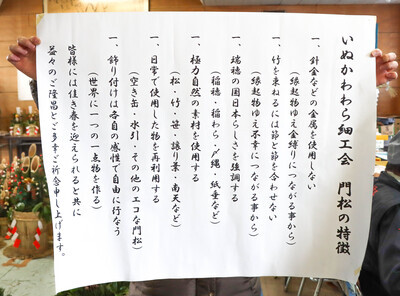 いぬかわわら細工会　門松の特徴
一、針金などの金属を使用しない
（縁起物ゆえ金縛りにつながる事から）
一、竹を束ねるには節と節を合わせない
（縁起物ゆえ不幸につながる事から）
一、瑞穂の国日本らしさを強調する
（稲穂・稲わら・〆縄・紙垂など）
一、極力自然の素材を使用する
（松・竹・笹・譲り葉・南天など）
一、日常で使用した物を再利用する
（空き缶・水引・その他のエコな門松）
一、飾り付けは各自の感性で自由に行なう
（世界に一つの一点物を作る）
皆様には佳き春を迎えられると共に
益々のご隆昌とご多幸ご祈念申し上げます。